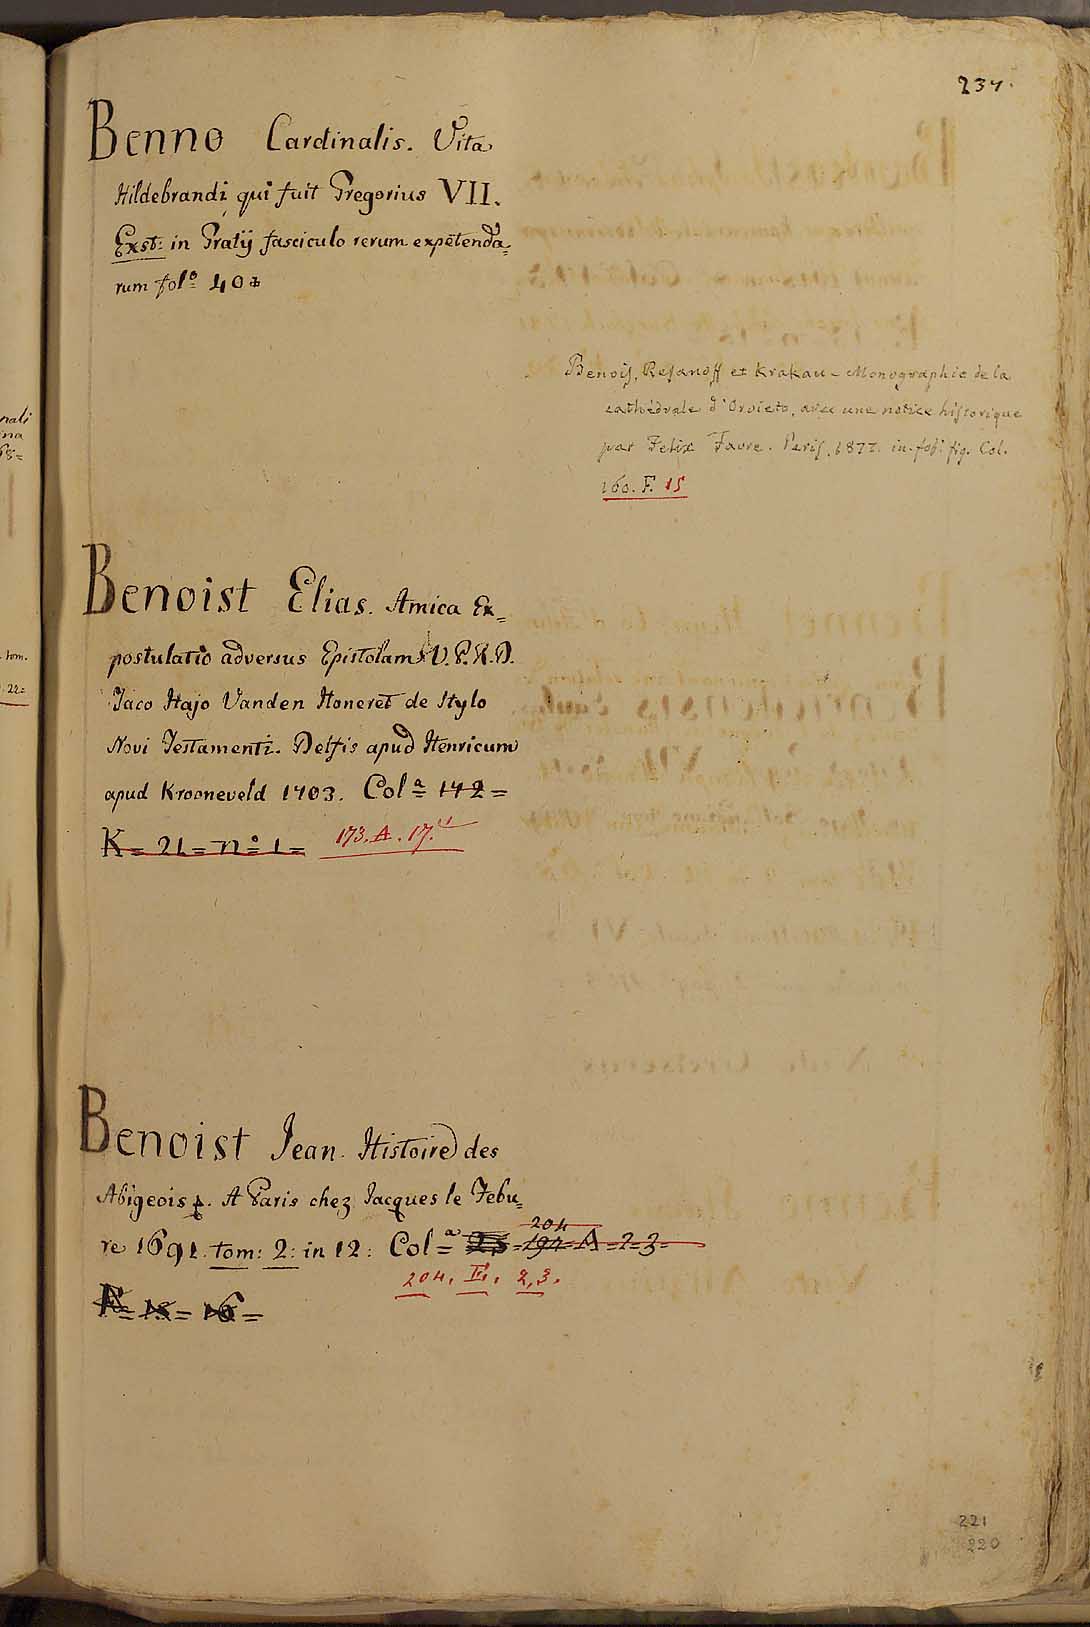 237.
Benno Cardinalis. Vita
Hildebrandi qui fuit Gregorius VII.
Exst: in Gratij fasciculo rerum expetenda=
rum folº 40
Benois, Resanoff et Krakau - Monographie de la
cathédrale d'Orvieto, avec une notice historique
par Felix Favre. Paris, 1877. in-fol: fig. Col.
160. F. 15
Benoist Elias. Amica Ex=
postulatio adversus Epistolam V. P. R. D.
Jaco Hajo Vanden Honeret de Stylo
Novi Testamenti. Delfis apud Henricum
apud Krooneveld 1703. Colª= 142=
K= 21= nº= 1= 173. A. 17.
Benoist Jean. Histoire des
Abigeois. A Paris chez Jacques le Febu=
204
re 1691. tom: 2: in 12: Col=ª 25=194=A=2=3=
204. 2,3.
F= 15= 16=
221
220